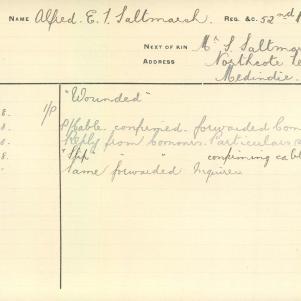 NAME Alfred. E. S. Saltmarsh. REG. &C. 52nd
NEXT OF KIN Mr S. Saltmar
ADDRESS Northcote Te
Medindie.
"Wounded"
8. 1/P
0. P/Cable. confirmed. forwarded Com
0. Reply from Commrs. Particulars
8. "Slip" " " confirming cabl
" Same forwarded Inquirer